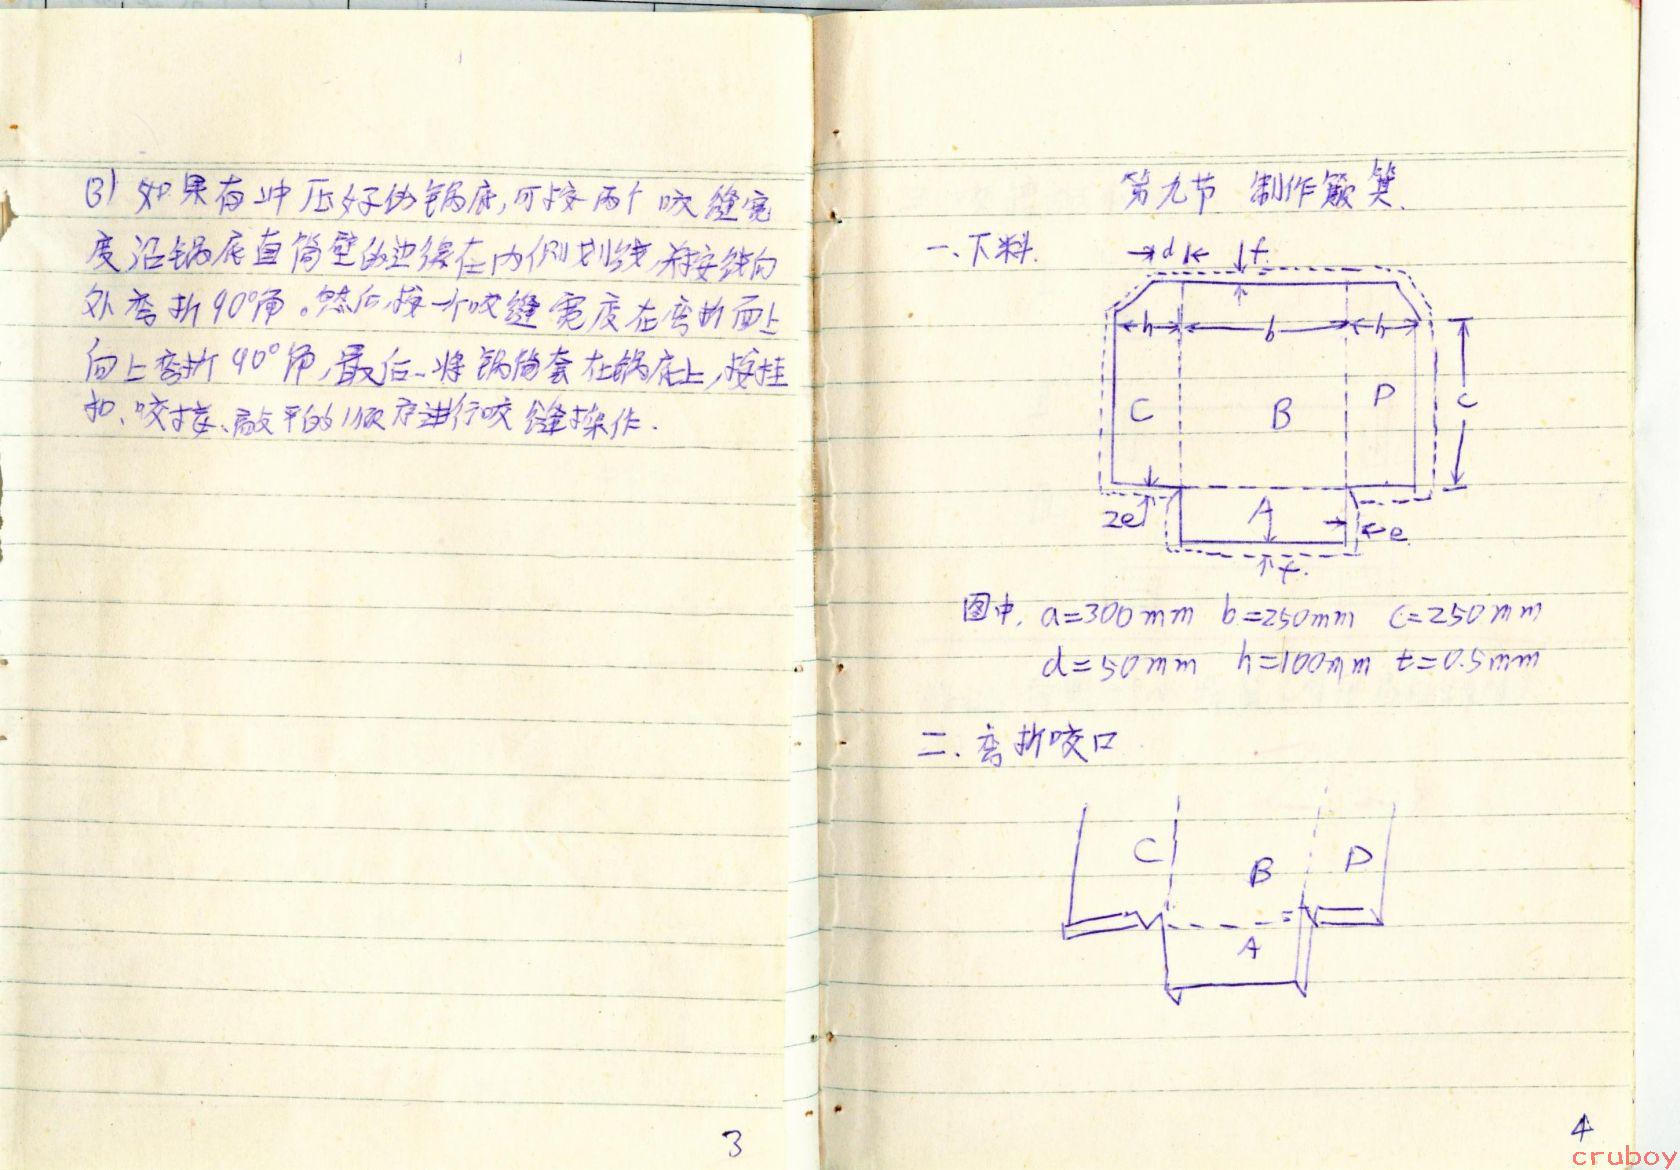 (3) 如果有冲压好的锅底,可按两个咬缝宽
度沿锅底直筒壁的边缘在内侧划线,并按线向
外弯折90°角。然后,按一个咬缝宽度在弯折面上
向上弯折90°角,最后、将锅筒套在锅底上,按挂
扣、咬接、敲平的顺序进行咬缝操作.
3
第九节 制作簸箕.
一、下料.
d f.
h b h
C B P c
2e A e.
f.
图中. a=300mm b=250mm c=250mm
d=50mm h=100mm t=0.5mm
二、弯折咬口
C B D
A
4
cruboy